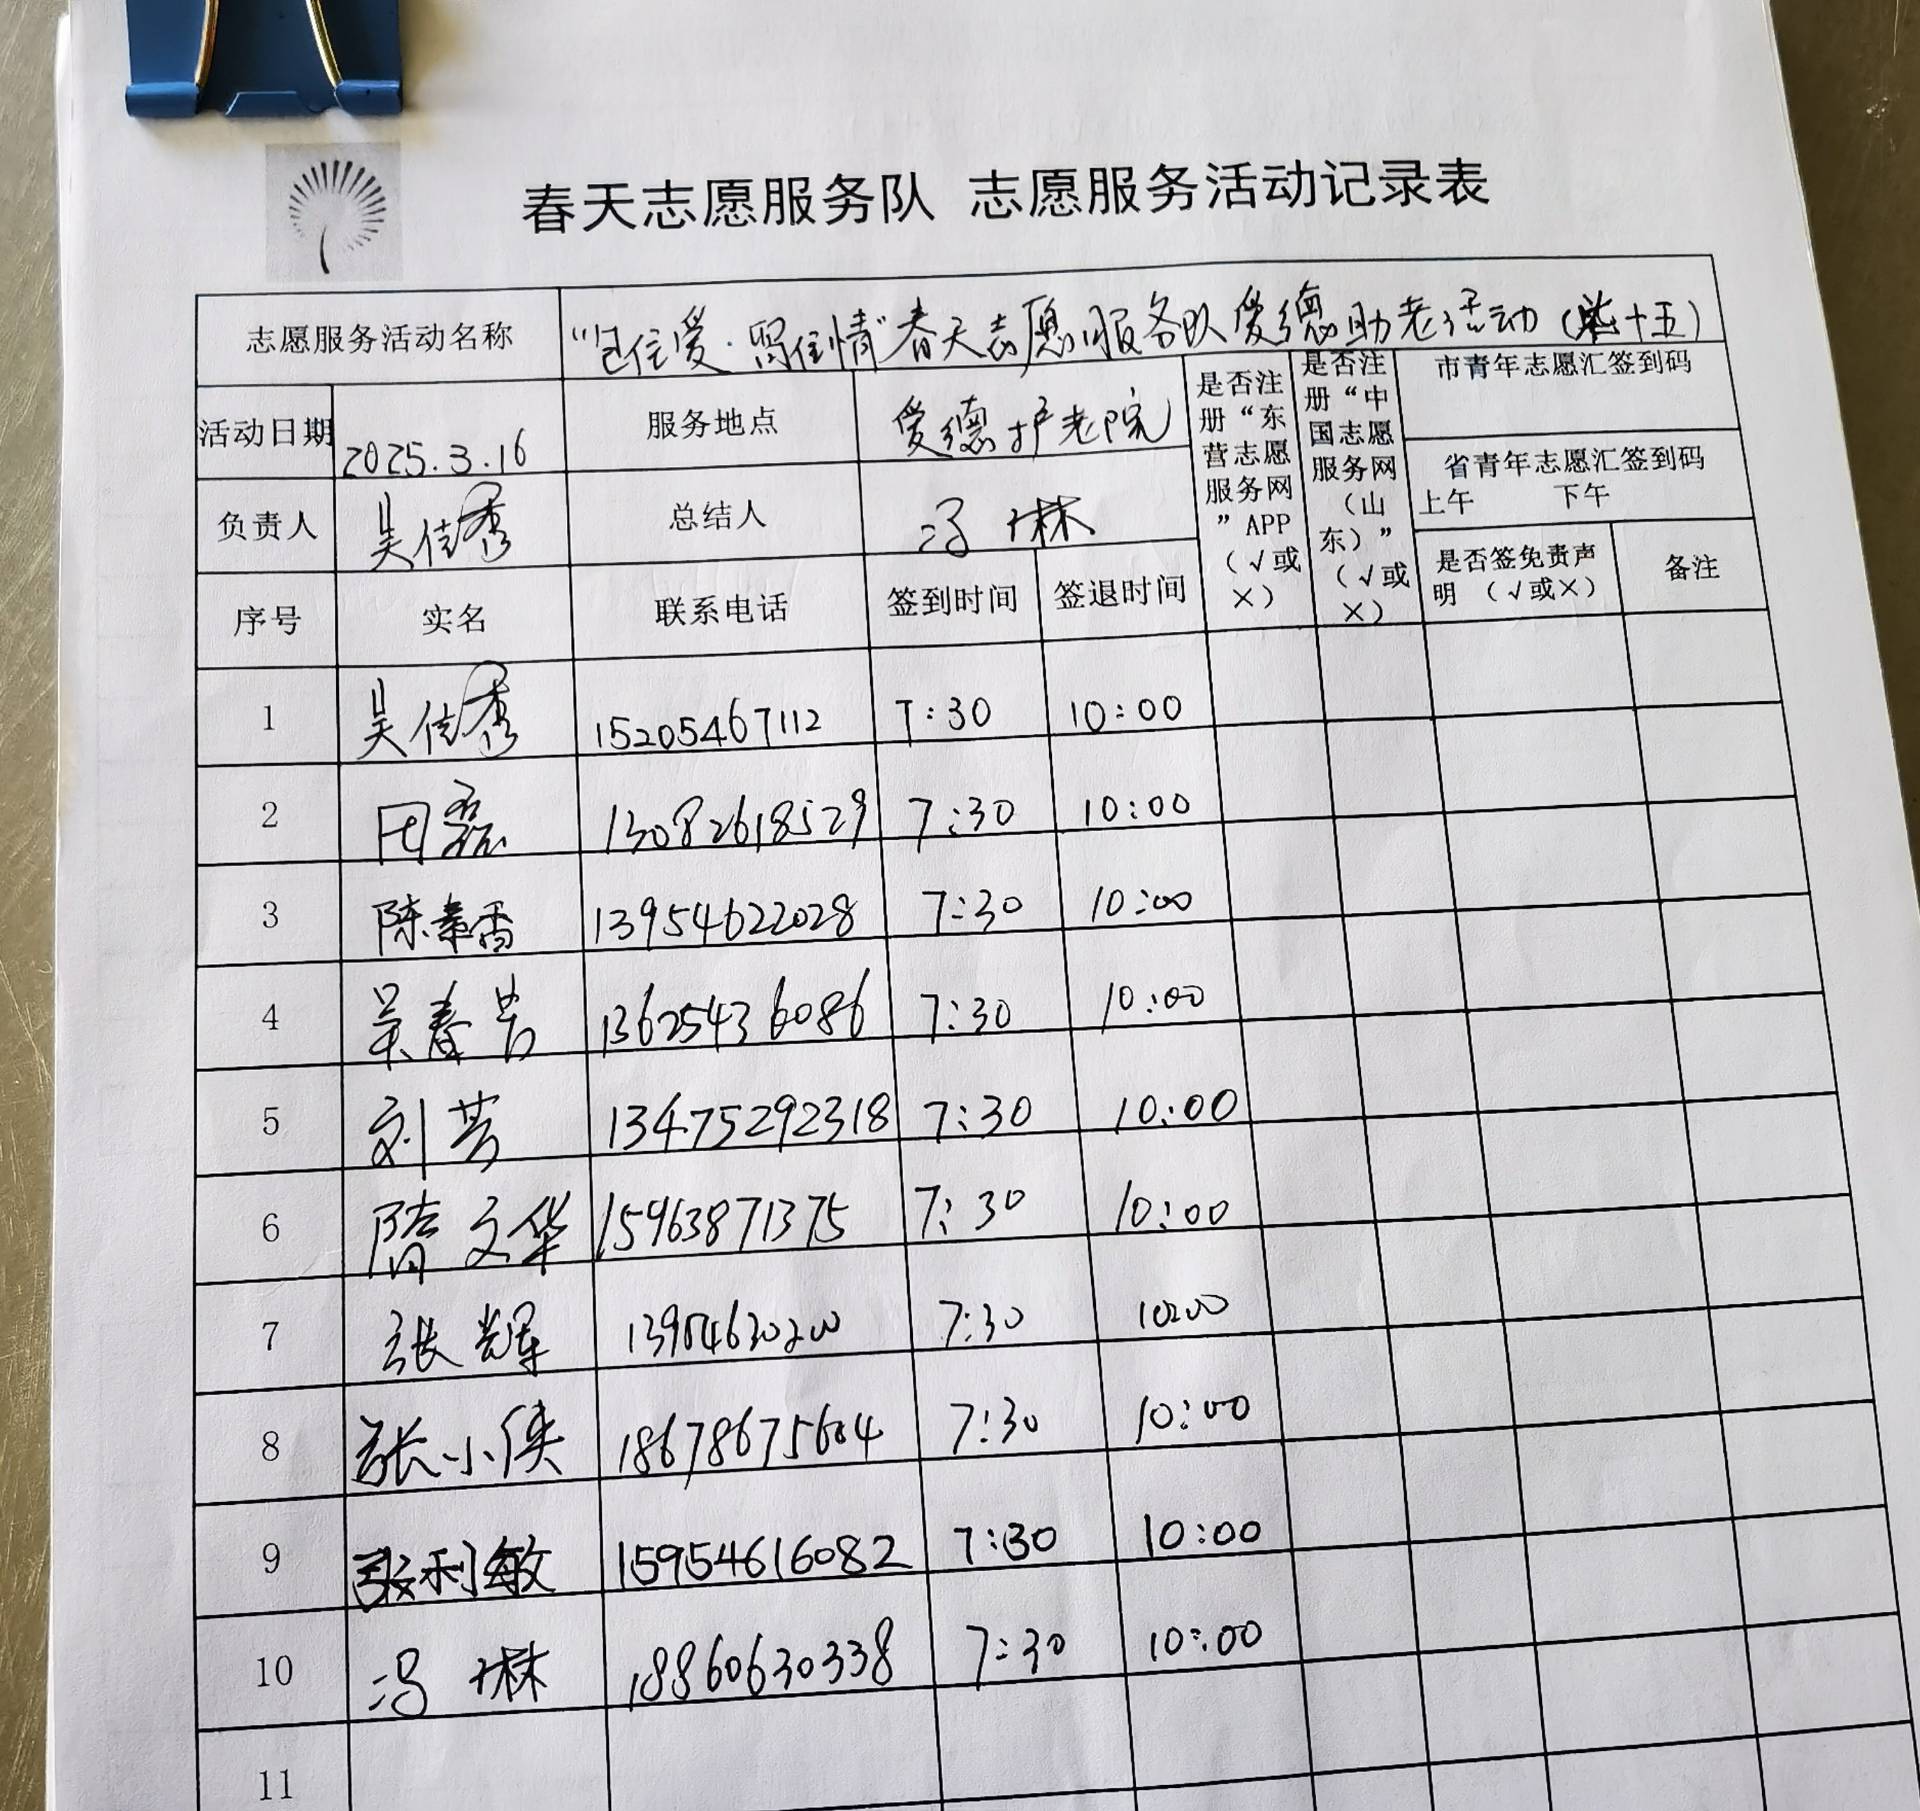 春天志愿服务队 志愿服务活动记录表
志愿服务活动名称 "包住爱·留住情"春天志愿服务队爱德助老活动（十五）
活动日期 2025.3.16 服务地点 爱德护老院
是否注册“东营志愿服务网”APP（√或×）
是否注册“中国志愿服务网（山东）”（√或×）
市青年志愿汇签到码
省青年志愿汇签到码
上午 下午
负责人 吴佳秀 总结人 冯琳
序号 实名 联系电话 签到时间 签退时间 是否签免责声明（√或×） 备注
1 吴佳秀 15205467112 7:30 10:00
2 田磊 13082618529 7:30 10:00
3 陈素雷 13954622028 7:30 10:00
4 吴春芳 13625436086 7:30 10:00
5 刘芳 13475292318 7:30 10:00
6 隋文华 15963871375 7:30 10:00
7 张辉 7:30 10:00
8 张小侠 18678675604 7:30 10:00
9 张利敏 15954616082 7:30 10:00
10 冯琳 18860630338 7:30 10:00
11